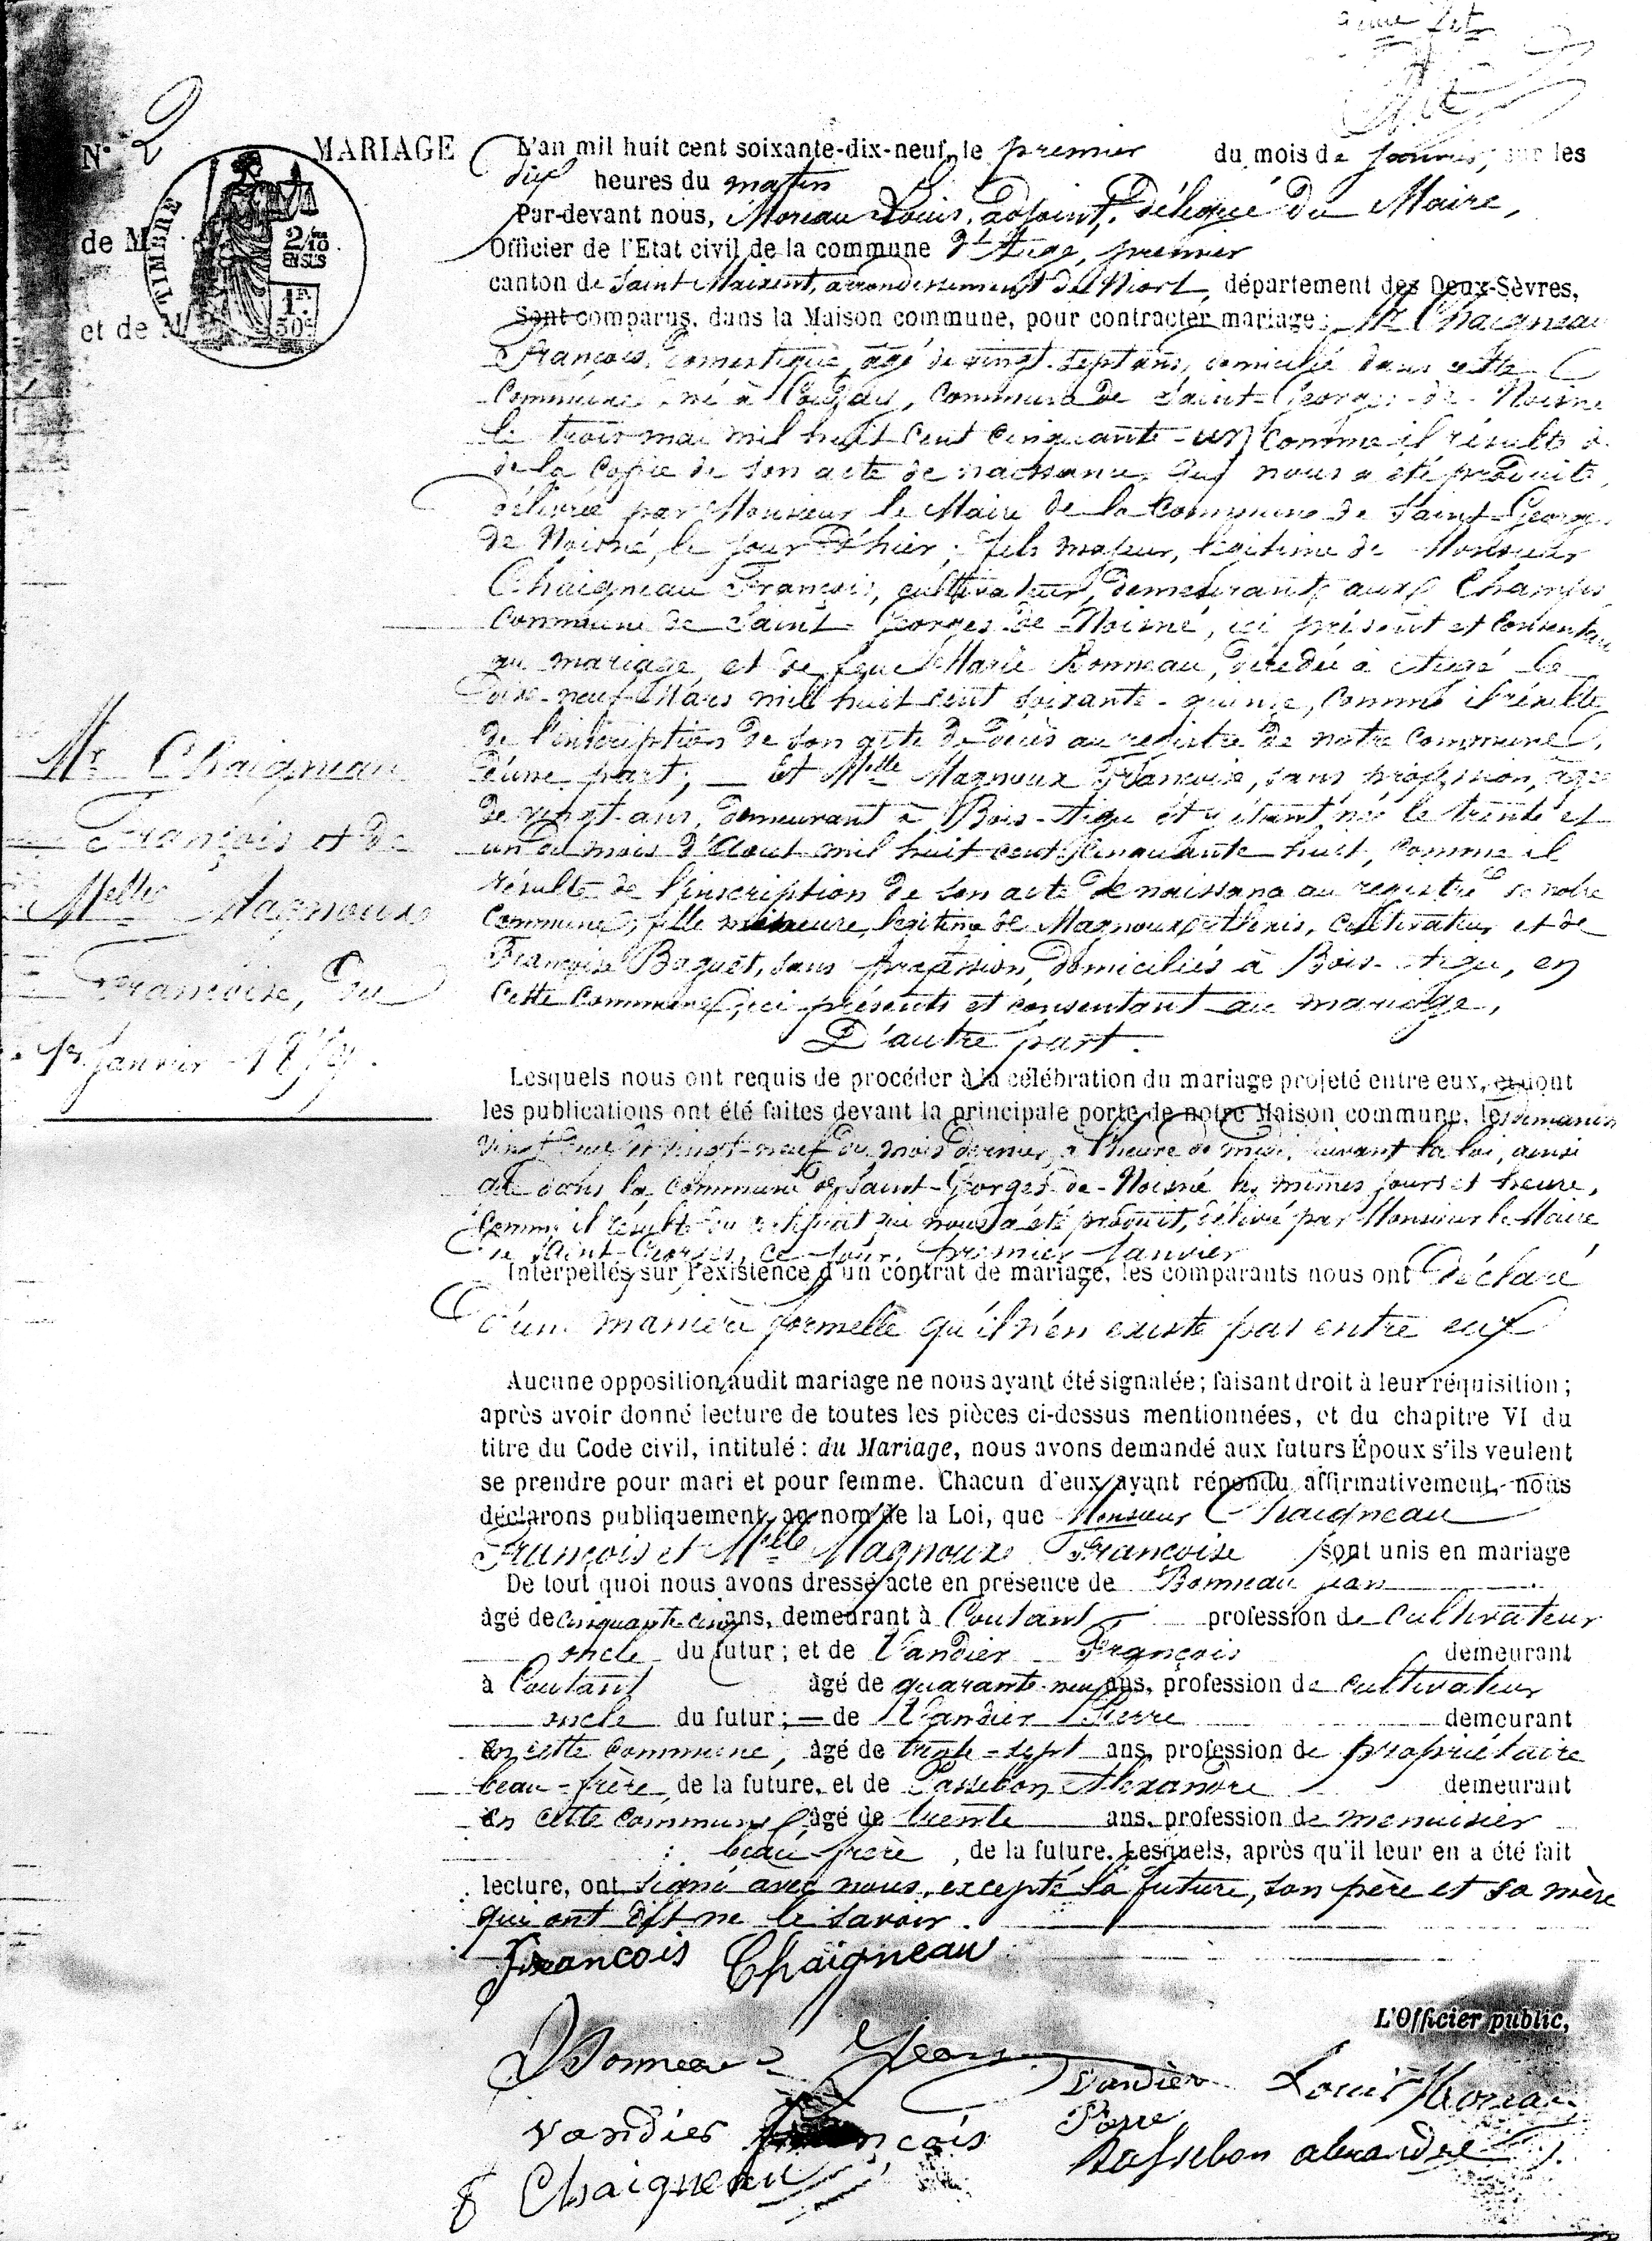 N° 2
MARIAGE
de M
et de M
TIMBRE
2/10
EN SUS
1F.
50c
Mr Chaigneau
François et de
Melle Magnoux
Françoise, du
1er Janvier 1879.
L'an mil huit cent soixante-dix-neuf, le premier du mois de janvier, sur les
dix heures du matin
Par-devant nous, Moreau Louis, adjoint, délégué du Maire,
Officier de l'Etat civil de la commune d'Augé, premier
canton de Saint-Maixent, arrondissement de Niort, département des Deux-Sèvres,
Sont comparus, dans la Maison commune, pour contracter mariage : Mr Chaigneau
François, domestique, âgé de vingt-sept ans, domicilié dans cette
Commune, né à, Commune de Saint-Georges-de-Noisné
le trois mai mil huit cent cinquante-un, comme il résulte
de la copie de son acte de naissance qui nous a été produite,
délivrée par Monsieur le Maire de la Commune de Saint-Georges
de Noisné, le jour d'hier ; fils majeur, légitime de Monsieur
Chaigneau François, cultivateur, demeurant aux Champs
Commune de Saint-Georges-de-Noisné, ici présent et consentant
au mariage, et de feue Marie Bonneau, décédée à Augé le
dix-neuf Mars mil huit cent soixante-quinze, comme il résulte
de l'inscription de son acte de décès au registre de notre commune,
d'une part ; — Et Melle Magnoux Françoise, sans profession, âgée
de vingt ans, demeurant à Bois-Aigu et y étant née le trente et
un du mois d'Août mil huit cent cinquante-huit, comme il
résulte de l'inscription de son acte de naissance au registre de notre
Commune, fille mineure, légitime de Magnoux, cultivateur et de
Françoise Baguet, sans profession, domiciliés à Bois-Aigu, en
cette commune, ici présents et consentant au mariage,
D'autre part.
Lesquels nous ont requis de procéder à la célébration du mariage projeté entre eux, et dont
les publications ont été faites devant la principale porte de notre Maison commune, les dimanches
vingt deux et vingt-neuf du mois dernier, à l'heure de midi, suivant la loi, ainsi
que dans la commune de Saint-Georges-de-Noisné les mêmes jours et heure,
comme il résulte du certificat qui nous a été produit, délivré par Monsieur le Maire
de Saint-Georges, ce jour, premier Janvier
Interpellés sur l'existence d'un contrat de mariage, les comparants nous ont déclaré
d'une manière formelle qu'il n'en existe pas entre eux
Aucune opposition audit mariage ne nous ayant été signalée ; faisant droit à leur réquisition ;
après avoir donné lecture de toutes les pièces ci-dessus mentionnées, et du chapitre VI du
titre du Code civil, intitulé : du Mariage, nous avons demandé aux futurs Époux s'ils veulent
se prendre pour mari et pour femme. Chacun d'eux ayant répondu affirmativement, nous
déclarons publiquement, au nom de la Loi, que Monsieur Chaigneau
François et Melle Magnoux Françoise sont unis en mariage
De tout quoi nous avons dressé acte en présence de Bonneau jean
âgé de cinquante cinq ans, demeurant à Coutant profession de cultivateur
oncle du futur ; et de Vandier François demeurant
à Coutant âgé de quarante-neuf ans, profession de cultivateur
oncle du futur ; — de Vandier Pierre demeurant
en cette commune, âgé de trente-sept ans, profession de propriétaire
beau-frère de la future, et de Passebon Alexandre demeurant
en cette commune âgé de trente ans, profession de menuisier
beau-frère, de la future. Lesquels, après qu'il leur en a été fait
lecture, ont signé avec nous, excepté la future, son père et sa mère
qui ont dit ne le savoir.
François Chaigneau
L'Officier public,
Bonneau Jean
Vandier Pierre
Louis Moreau
Vandier François
Passebon alexandre
f Chaigneau